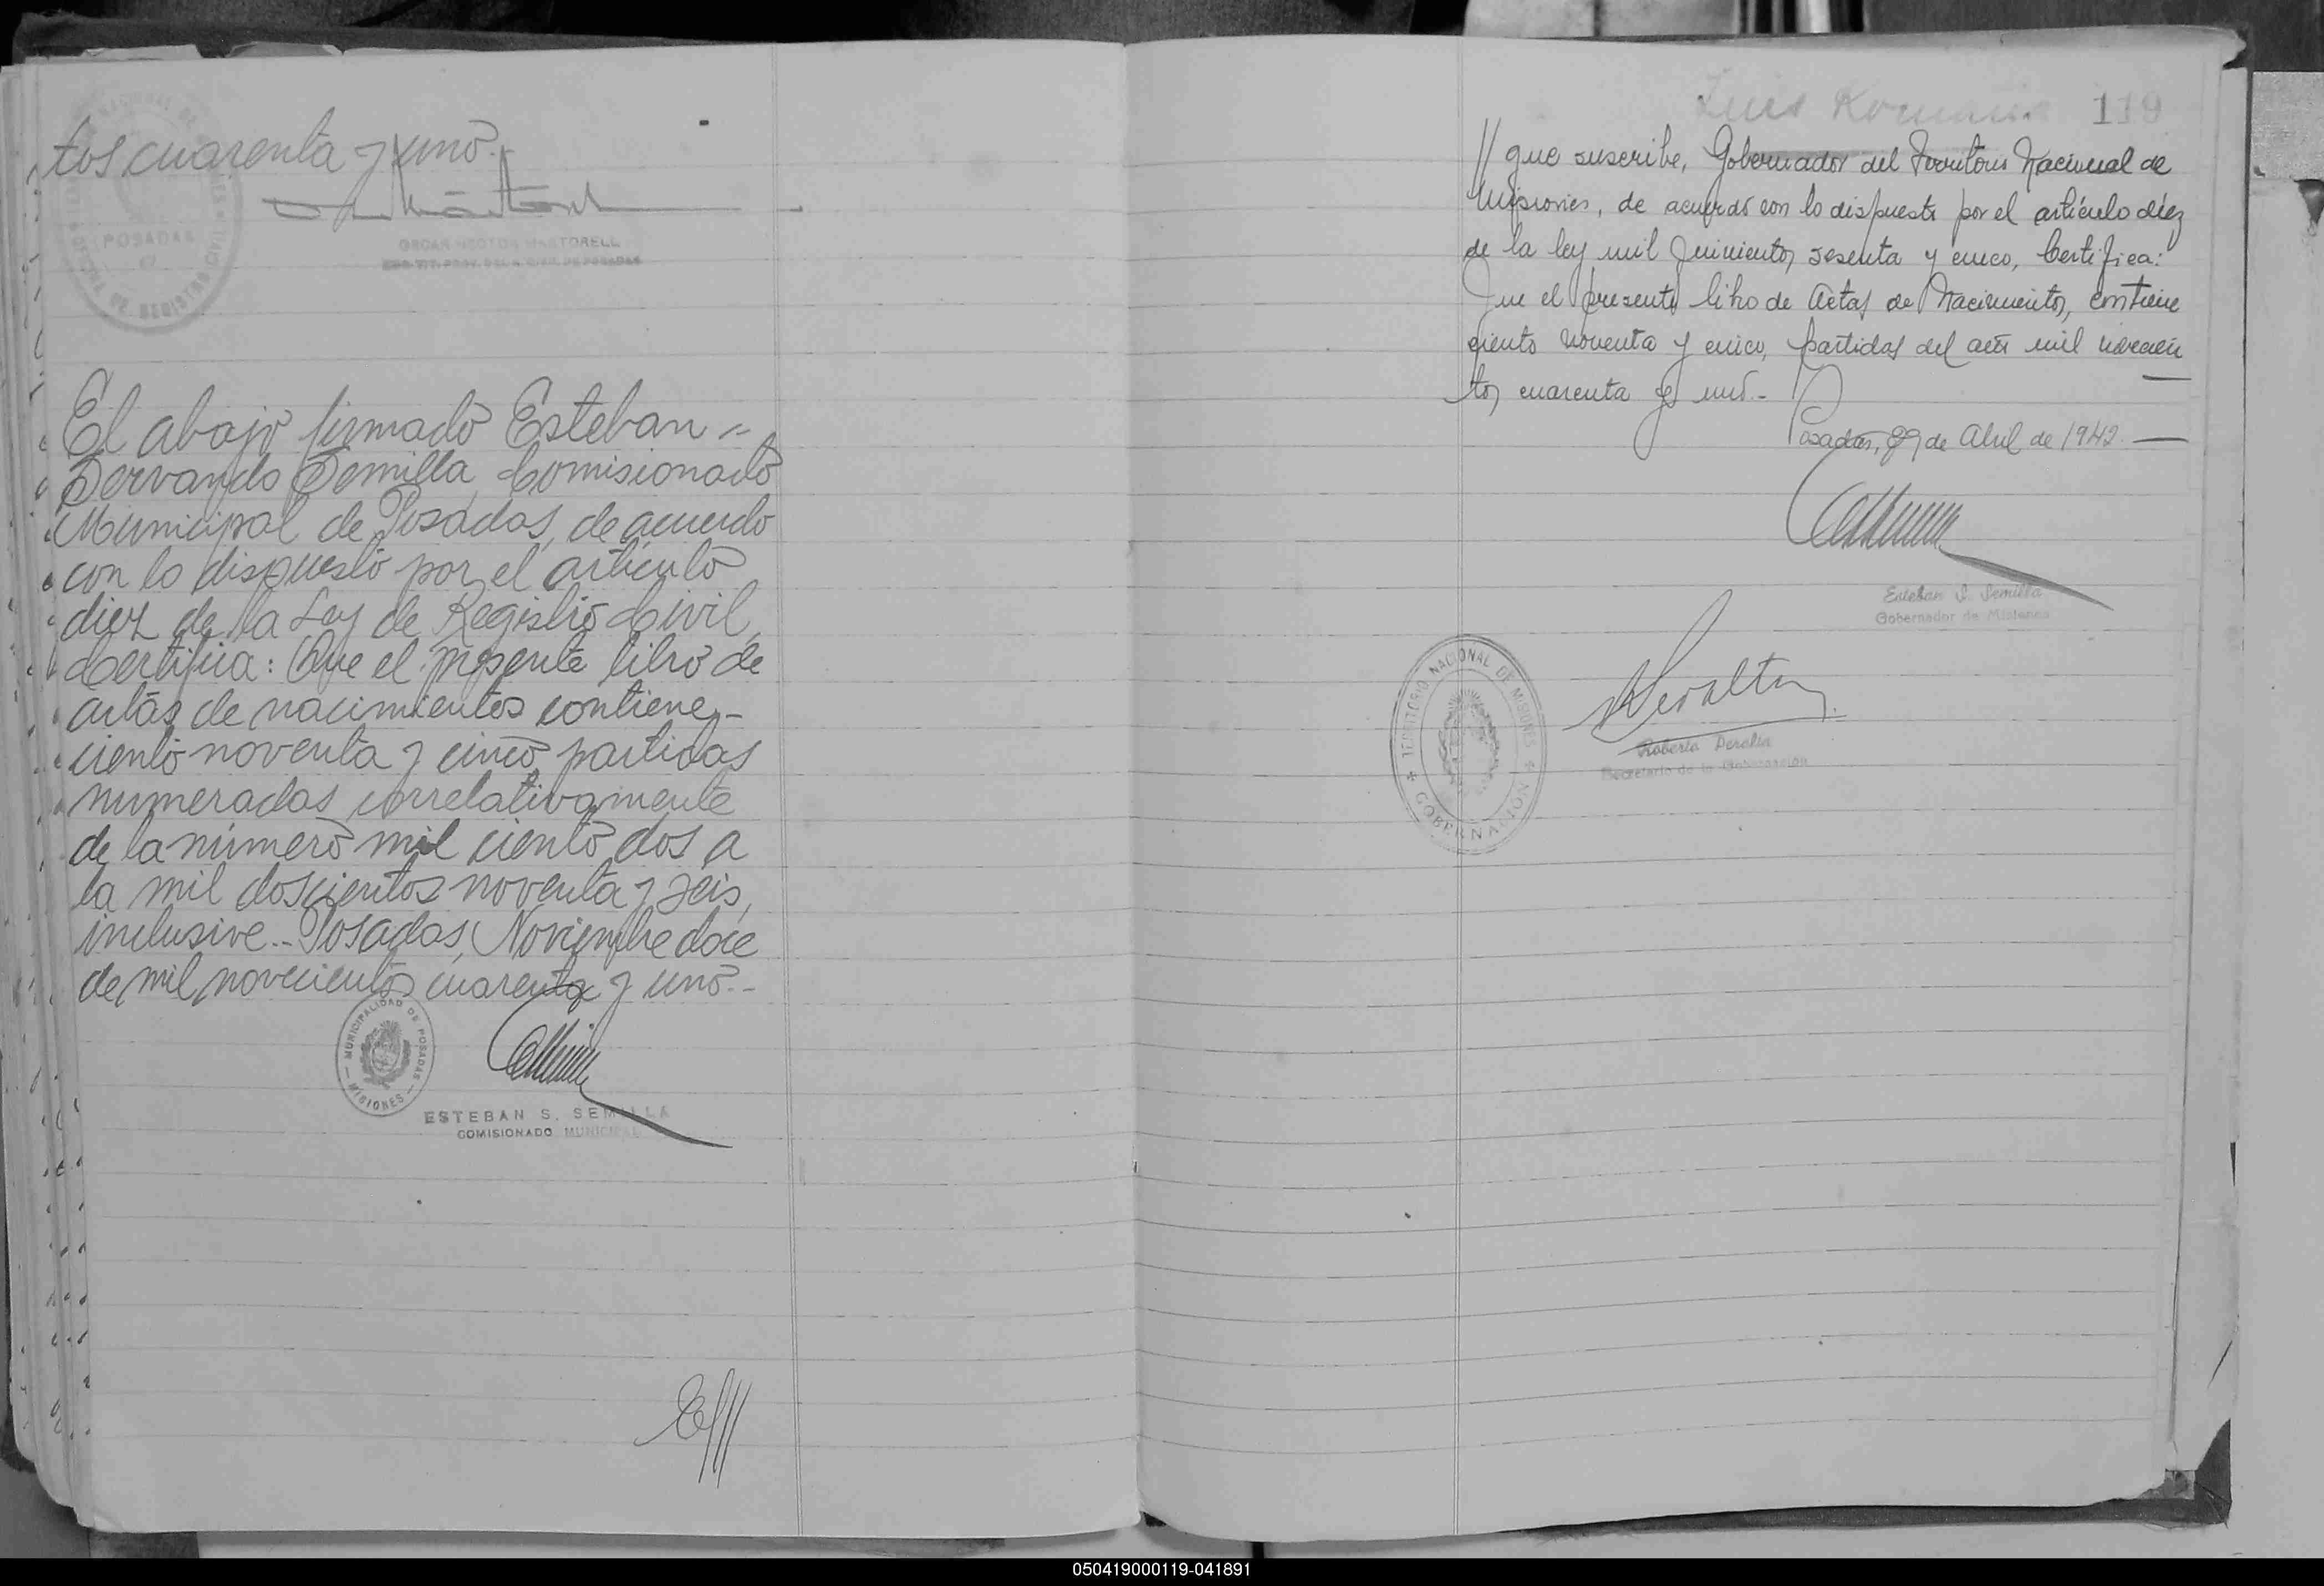 tos cuarenta y uno.
OSCAR HECTOR MARTORELL
POSADAS
El abajo firmado Esteban
Servando Semilla, Comisionado
Municipal de Posadas, de acuerdo
con lo dispuesto por el artículo
diez de la Ley de Registro Civil,
Certifica: Que el presente libro de
actas de nacimientos contiene
ciento noventa y cinco partidas
numeradas correlativamente
de la número mil ciento dos a
la mil doscientos noventa y seis,
inclusive.- Posadas, Noviembre doce
de mil novecientos cuarenta y uno.-
MUNICIPALIDAD DE POSADAS
MISIONES
ESTEBAN S. SEMILLA
COMISIONADO MUNICIPAL
El //
Luis Romain 119
// que suscribe, Gobernador del Territorio Nacional de
Misiones, de acuerdo con lo dispuesto por el artículo diez
de la ley mil quinientos sesenta y cinco, Certifica:
Que el presente libro de Actas de Nacimientos, contiene
ciento noventa y cinco, partidas del año mil novecien
tos cuarenta y uno.-
Posadas, 29 de Abril de 1942.
Esteban S. Semilla
Gobernador de Misiones
TERRITORIO NACIONAL DE MISIONES
GOBERNACIÓN
Peralta
Roberto Peralta
Secretario de la Gobernación
050419000119-041891